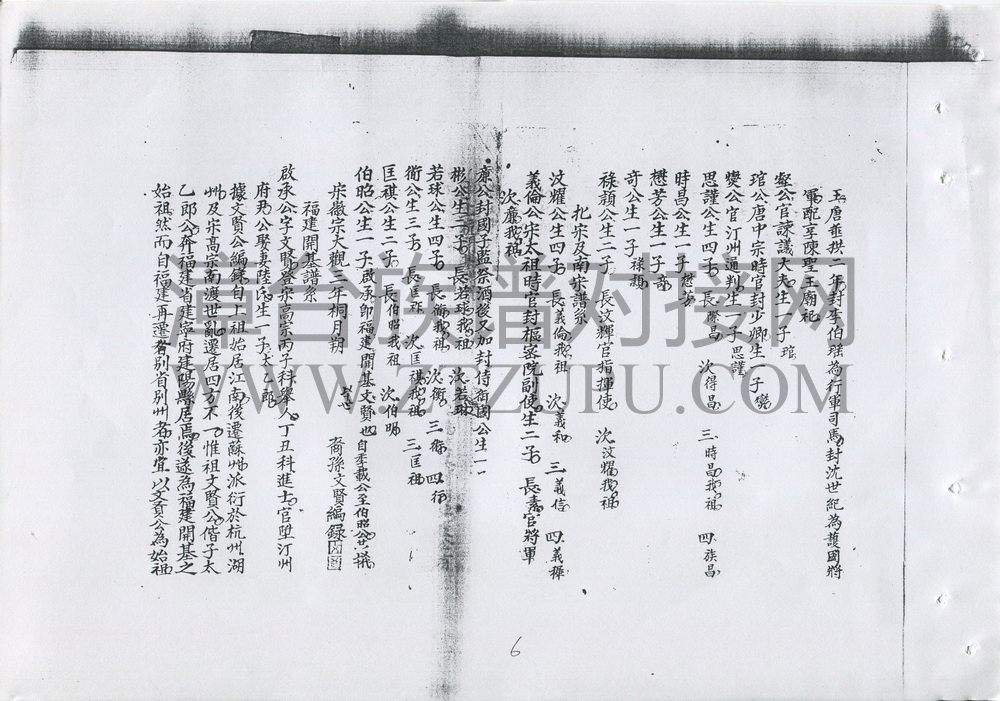 玉唐垂拱二年封李伯瑤為行軍司馬封沈世紀為護國將
軍配享陳聖王廟祀
公官諫議大夫生一子 琯
琯公唐中宗時官封少卿生一子㷟
公官汀州通判生一子 思謹
思謹公生四子 長 昌 次得昌 三時昌我祖 四族昌
時昌公生一子 懋芳
懋芳公生一子 奇
奇公生一子 祿頴
祿頴公生二子 長汶輝官指揮使 次汶耀我祖
北宋及南宋譜系
汶耀公生四子 長義倫我祖 次義和 三義信 四義
義倫公宋太祖時官封樞密院副使生二子 長 官將軍
次 我祖
公封國子監祭酒後又加封侍衛國公生一
彬公生二子 長若球我祖 次若琳
若球公生四子 長衛我祖 次衡 三 四行
衛公生三子 長匡 次匡祺我祖 三匡福
匡祺公生二子 長伯昭我祖 次伯明
伯昭公生一子啟承即福建開基文賢也自 載公至伯昭公共 世
宋徽宗大觀三年桐月朔 裔孫文賢編錄
福建開基譜系
啟承公字文賢登宋高宗丙子科舉人丁丑科進士官陞汀州
府尹公娶妻陸氏生一子太乙郎
據文賢公編錄自上祖始居江南後遷蘇州派衍於杭州湖
州及宋高宗南渡世亂遷居四方不一惟祖文賢公偕子太
乙郎公奔福建省建寧府建陽縣居焉後遂為福建開基之
始祖然而自福建再遷者別省別州者亦宜以文賢公為始祖
6
漳台族譜对接网
WWW.ZTZUPU.COM